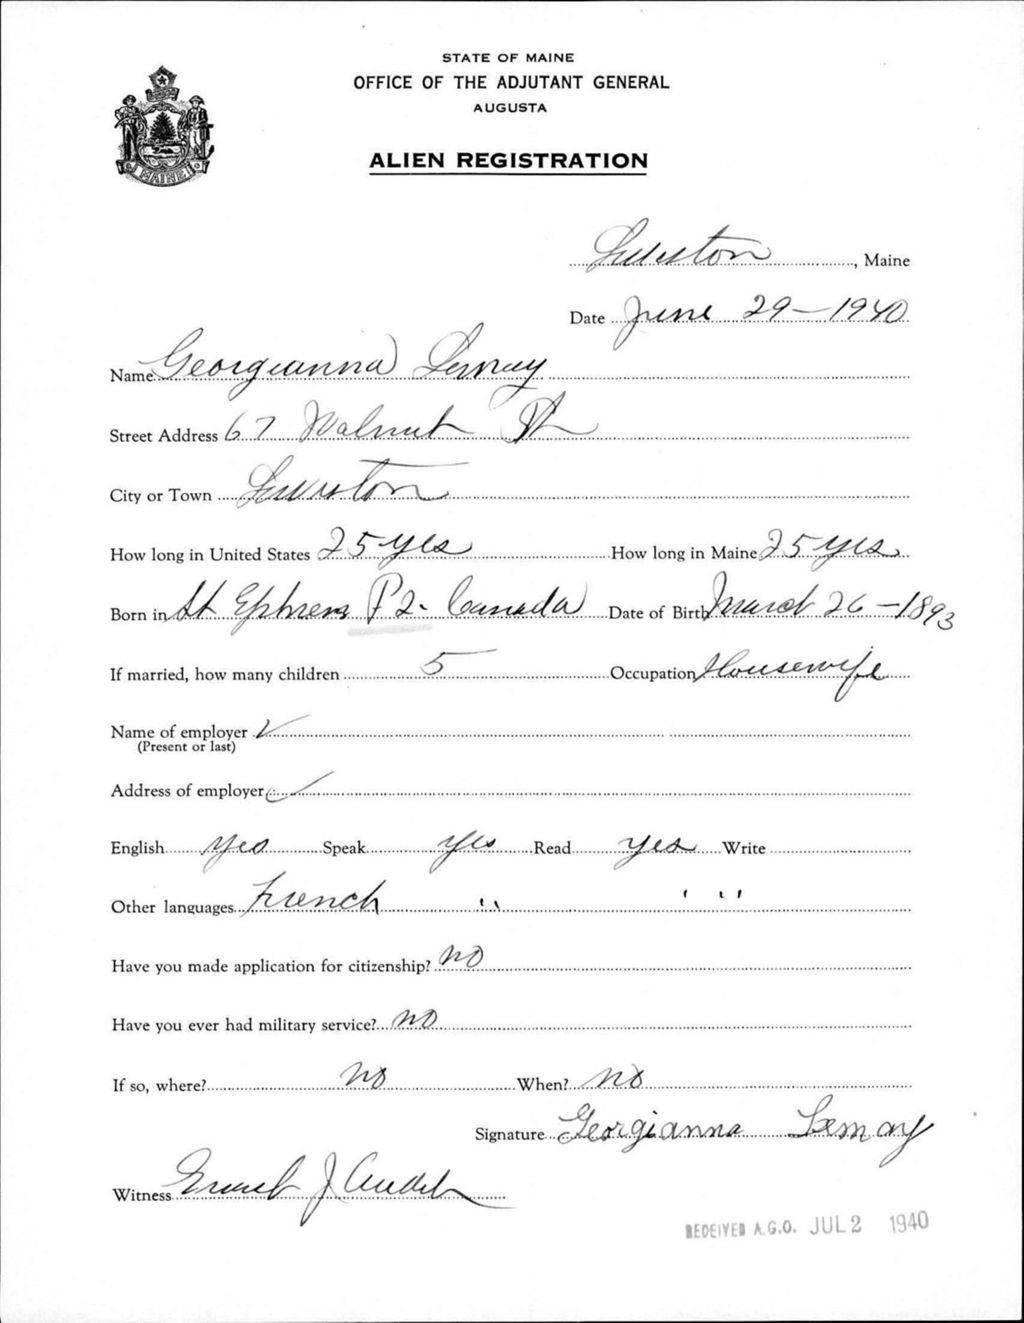 STATE OF MAINE
OFFICE OF THE ADJUTANT GENERAL
AUGUSTA
ALIEN REGISTRATION
MAINE
Lewiston, Maine
Date June 29-1940
Name Georgianna Lemay
Street Address 67 Walnut St
City or Town Lewiston
How long in United States 25 yes How long in Maine 25 yes
Born in St Ephrem P2. Canada Date of Birth March 26-1893
If married, how many children 5 Occupation Housewife
Name of employer ✓
(Present or last)
Address of employer ✓
English yes Speak yes Read yes Write
Other languages French " " "
Have you made application for citizenship? no
Have you ever had military service? no
If so, where? no When? no
Signature Georgianna Lemay
Witness Ernest J Audet
RECEIVED A.G.O. JUL 2 1940